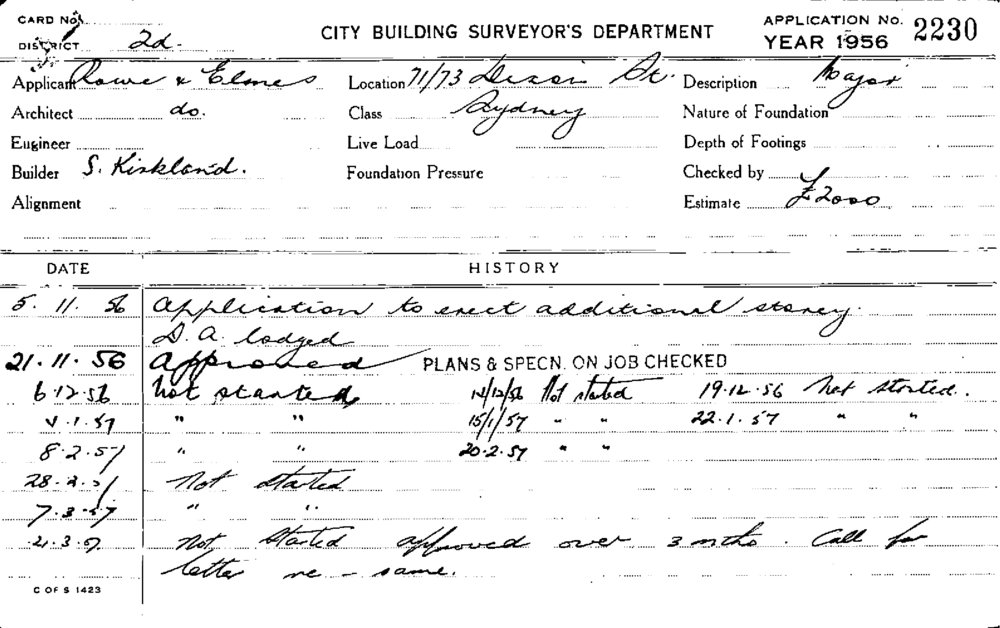 CARD No.
DISTRICT 2d.
CITY BUILDING SURVEYOR'S DEPARTMENT
APPLICATION No. 2230
YEAR 1956
Applicant Rowe & Elmes Location 71/73 Dixon St. Description Major
Architect do. Class Sydney Nature of Foundation
Engineer Live Load Depth of Footings
Builder S. Kirkland. Foundation Pressure Checked by
Alignment Estimate £2000
DATE HISTORY
5.11.56 Application to erect additional storey.
D.A. lodged
21.11.56 Approved PLANS & SPECN. ON JOB CHECKED
6.12.56 Not started 14/12/56 Not started 19.12.56 Not started.
.1.57 " " 15/1/57 " " 22.1.57 " "
8.2.57 " " 20.2.57 " "
28.2.57 Not started
7.3.57 " "
21.3.57 Not started approved over 3 mths. Call for
letter re - same.
C OF S 1423